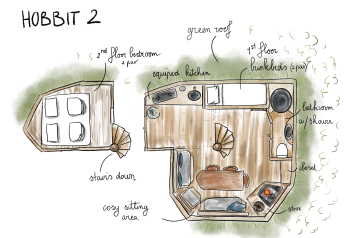 HOBBIT 2
green roof
2nd floor bedroom
2 par
1st floor
bunkbeds (2 par)
equiped kitchen
bathroom
w/shower
closet
stairs down
cozy sitting
area
stove